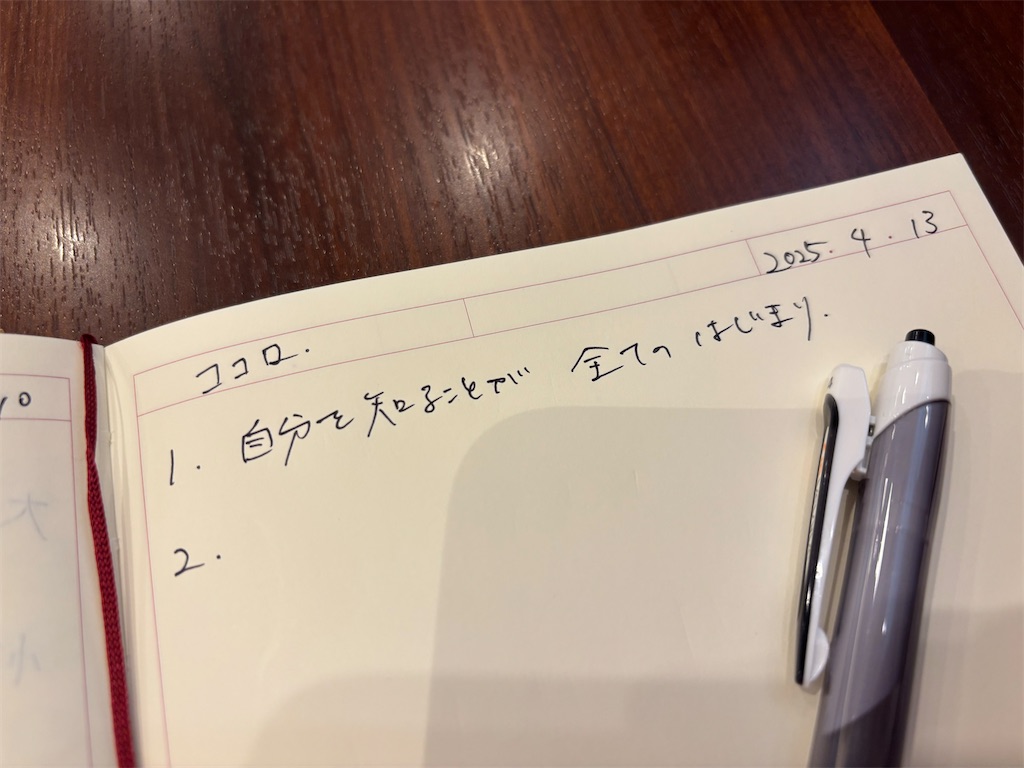 10
大
小
2025. 4. 13
ココロ.
1. 自分を知ることが 全ての はじまり.
2.